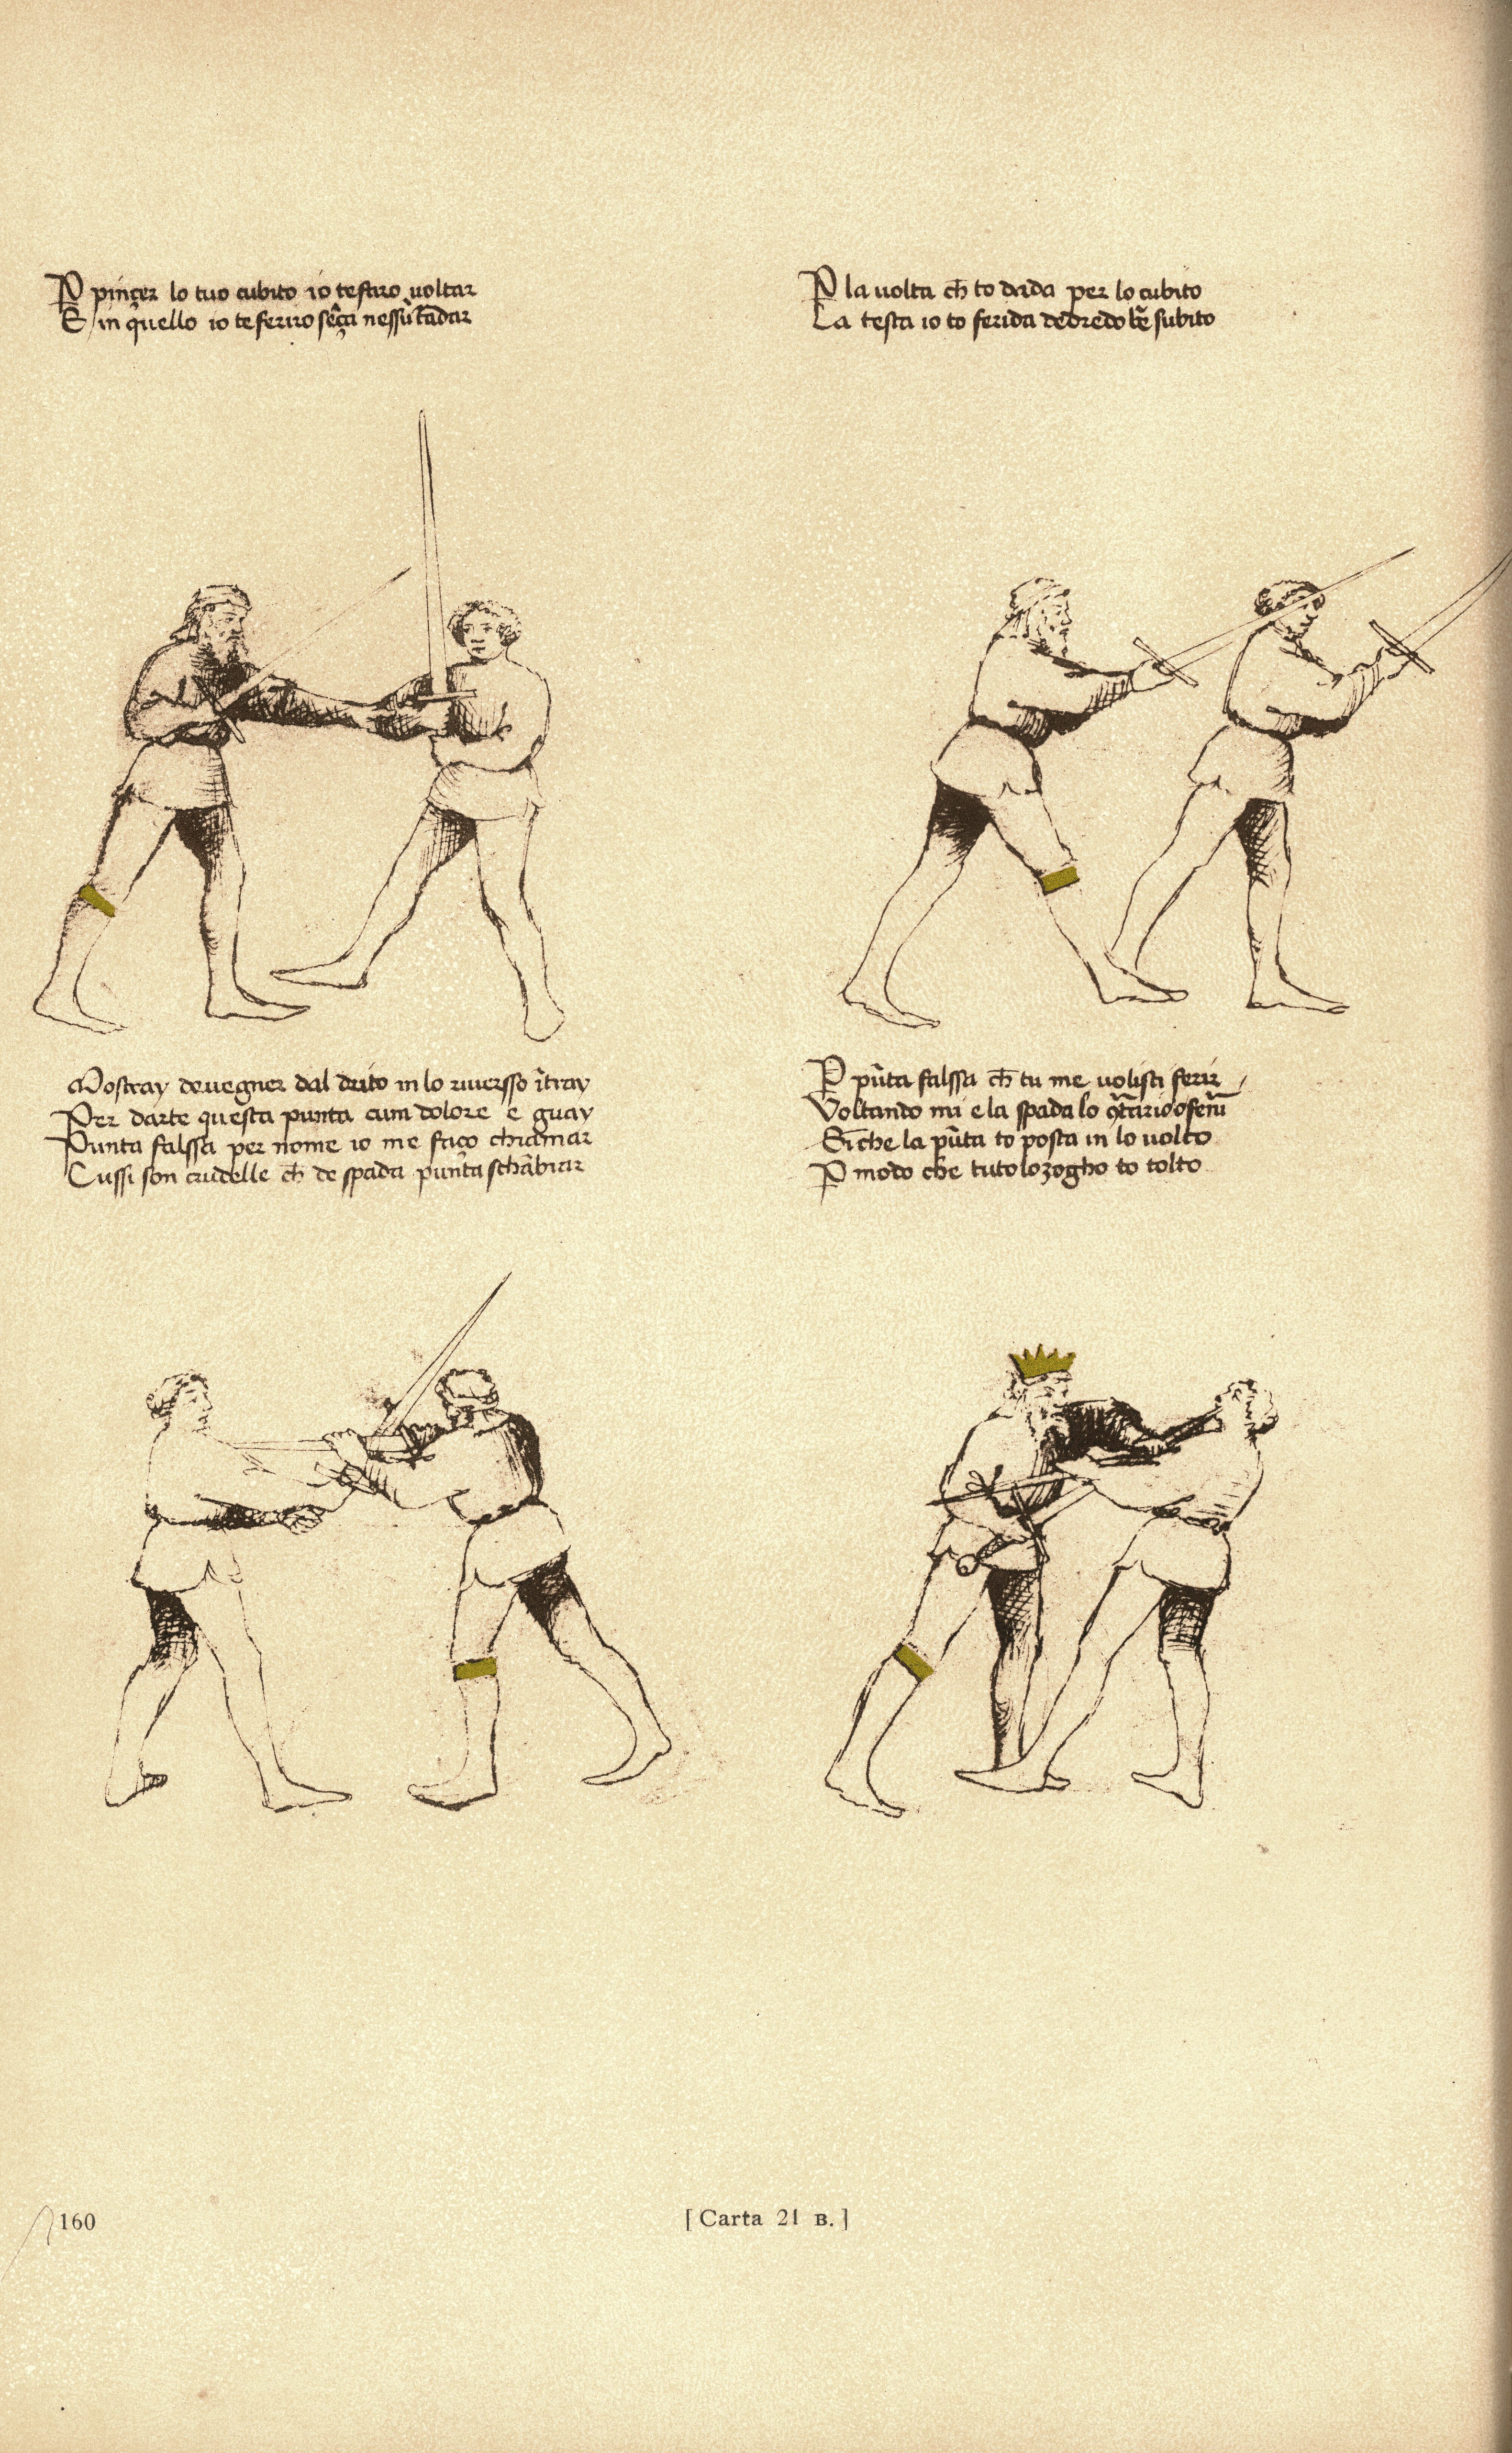 P̱ pinçer lo tuo cubito io te faro voltar
E in q̃llo io te feriro sẽça nessũ tãdar
P̱ la uolta ch̃ to dada per lo cubito
La testa io to ferida dedredo bẽ subito
Mostray de uegner dal drito in lo riuersso ĩtray
Per darte questa punta cum dolore e guay
Punta falssa per nome io me faço chiamar
Cussi son crudelle ch̃ de spada punta schãbiar
P̱ pũta falssa ch̃ tu me uolisti ferir
Voltando mi e la spada lo q̃tario ofenũ
Si che la pũta to posta in lo uolto
P̱ modo che tuto lo zogho to tolto
160
[Carta 21 B.]